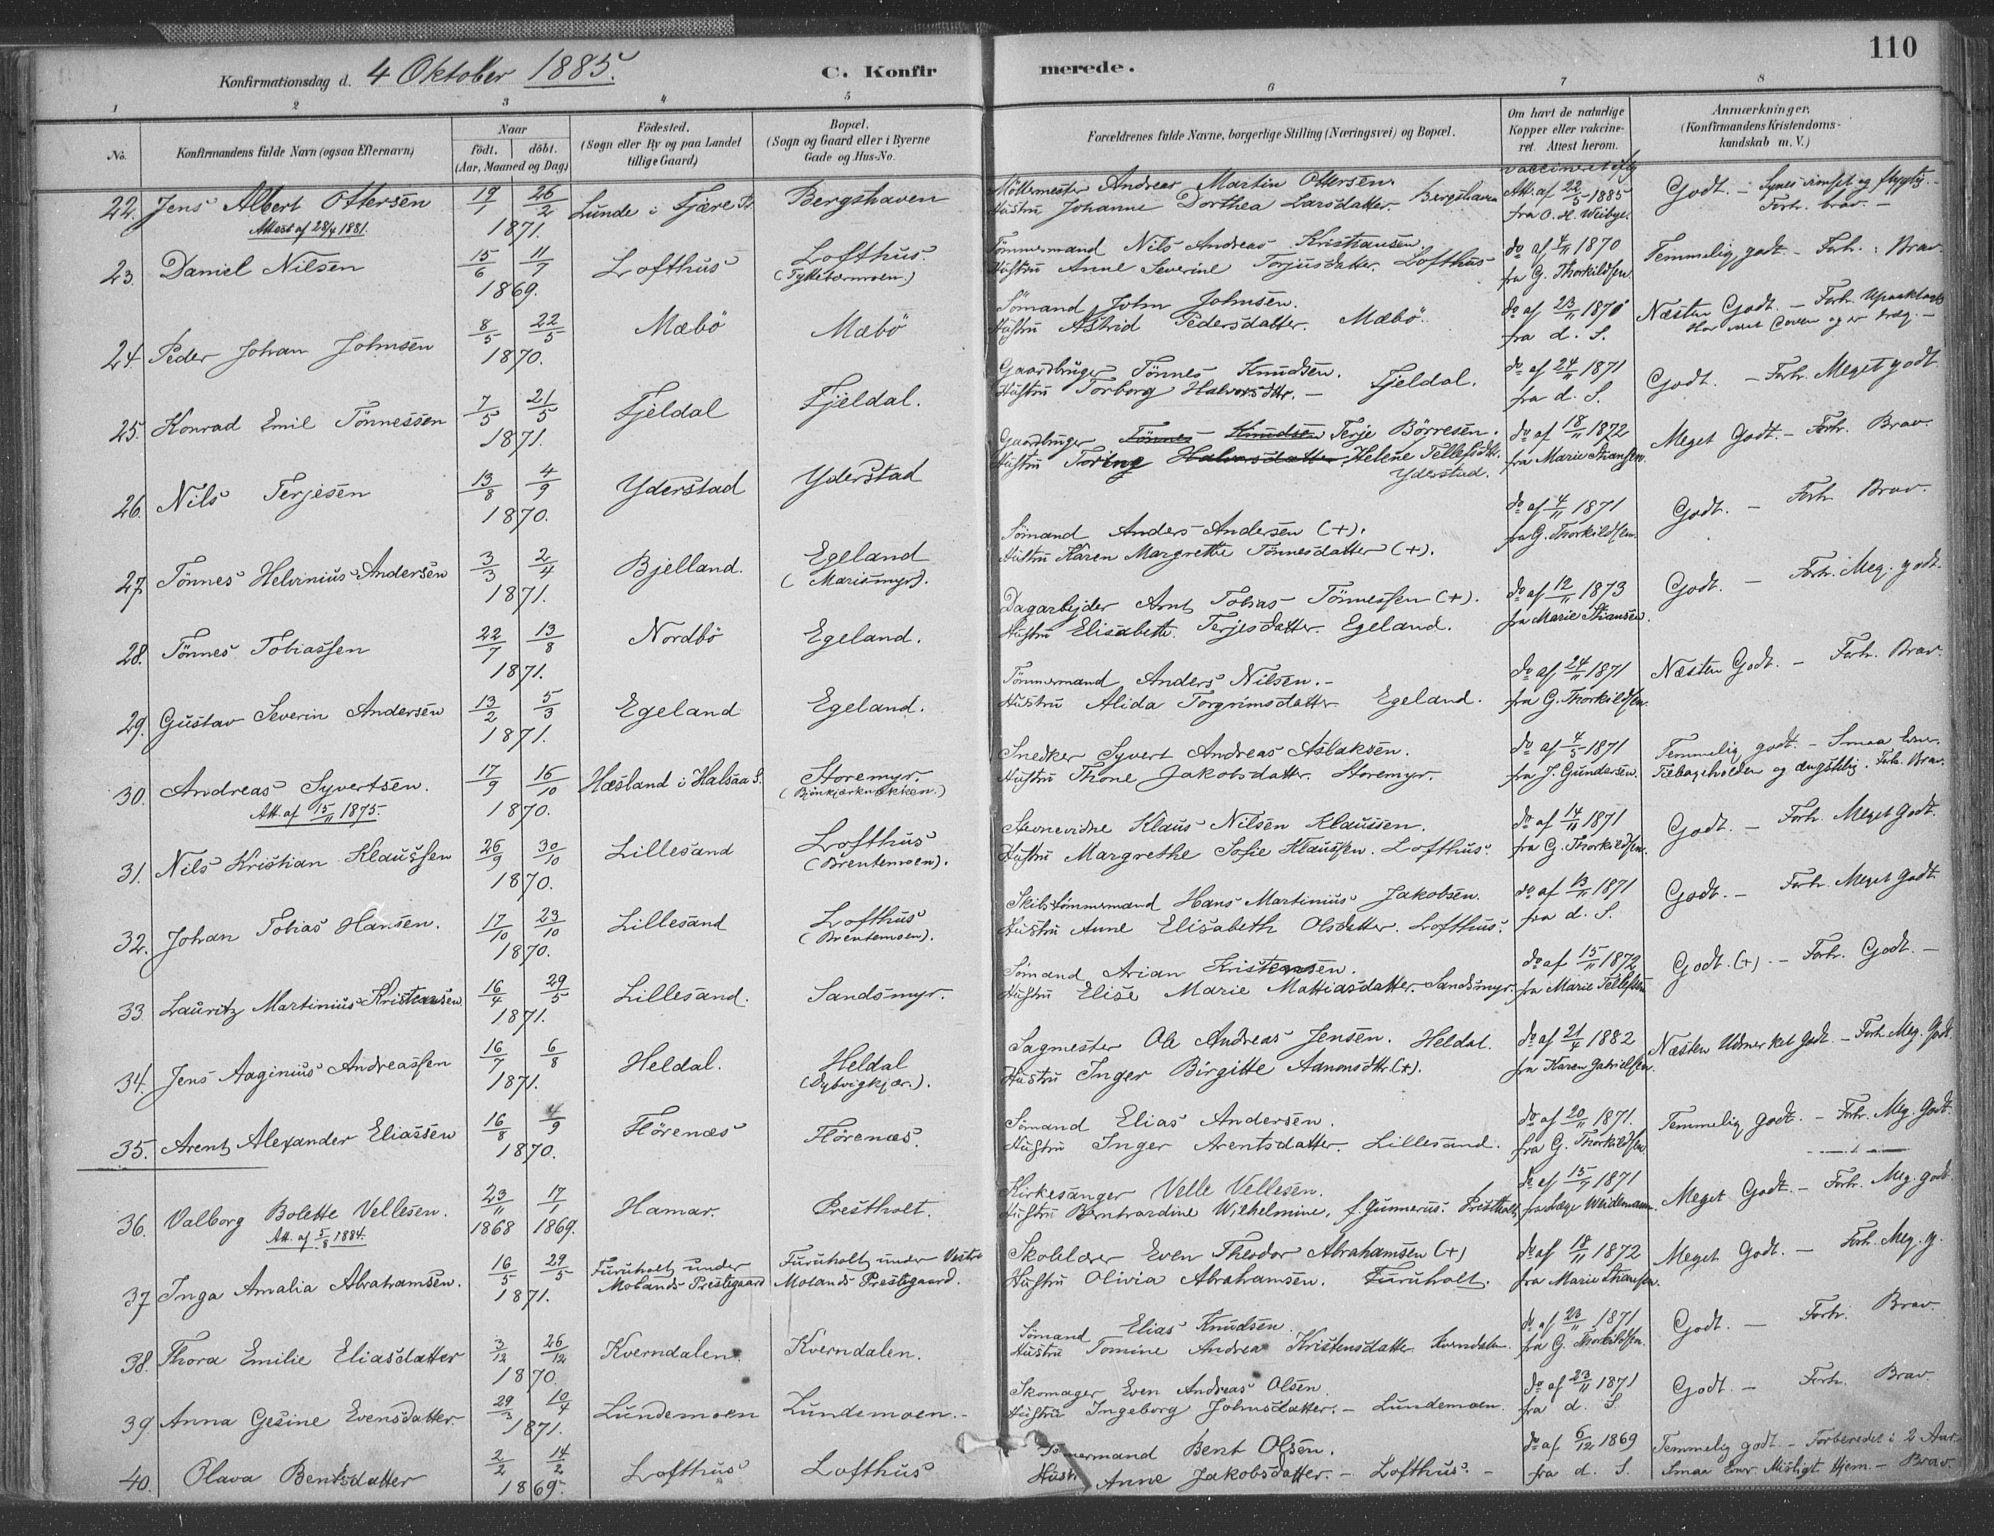 110
Konfirmationsdag d. 4 Oktober 1885. C. Konfir merede.
1 2 3 4 5 6 7 8
No. Konfirmandens fulde Navn (ogsaa Efternavn) Naar født. døbt. (Aar, Maaned og Dag) Fødested. (Sogn eller By og paa Landet tillige Gaard) Bopæl. (Sogn og Gaard eller i Byerne Gade og Hus-No. Forældrenes fulde Navne, borgerlige Stilling (Næringsvei) og Bopæl. Om havt de naturlige Kopper eller vakcineret. Attest herom. Anmærkninger. (Konfirmandens Kristendomskundskab m. V.)
22. Jens Albert Ottersen 19/1 26/2 Lunde i Fjære Bergshaven Andreas Martin Ottersen. Att. af 22/5 1885 Godt. –
Attest af 28/4 1881. 1871. Hustru Johanne Dorthea Larsdatter. Bergshaven fra O. H. Forh. brav. –
23. Daniel Nilsen 15/6 11/7 Lofthus Lofthus. Tømmermand Nils Andreas Kristiansen. do af 4/11 1870 Temmelig godt. – Forh. Brav.
1869. Hustru Anne Severine Torjusdatter. Lofthus fra G. Thorkildsen
24. Peder Johan Johnsen 8/5 22/5 Mæbö Mæbö Sømand John Johnsen. do af 23/11 1870 Næsten Godt. – Forh.
1870. Hustru Astrid Pedersdatter. Mæbö. fra d. S.
25. Konrad Emil Tönnessen 7/5 21/5 Fjeldal Fjeldal. Gaardbruger Tönnes Knudsen. do af 24/11 1871 Godt. – Forh. Meget godt
1871. Hustru Torborg Halvorsdtr. – Fjeldal. fra d. S.
26. Nils Terjesen 13/8 4/9 Yderstad Yderstad Gaardbruger Tönnes Knudsen Terje Börresen. do af 18/11 1872 Meget Godt. – Forh. Brav.
1870. Hustru Toring Halvorsdatter Helene Tellefsdtr. Yderstad. fra Marie
27. Tönnes Helvinius Andersen 3/3 2/4 Bjelland. Egeland Sømand Anders Andersen (+). do af 4/11 1871 Godt. – Forh. Brav.
1871. (Marismyr). Hustru Karen Margrethe Tönnesdatter (+). fra G. Thorkildsen
28. Tönnes Tobiassen 22/7 13/8 Nordbö Egeland. Dagarbejder Arnt Tobias Tönnessen (+). do af 12/11 1873 Godt. – Forh. Meg. godt.
1871. Hustru Elisabeth Terjesdatter. Egeland. fra Marie
29. Gustav Severin Andersen 13/2 5/3 Egeland Egeland. Tømmermand Anders Nilsen. – do af 24/11 1871 Næsten Godt. – Forh. Brav.
1871. Hustru Alida Torgrimsdatter Egeland. fra G. Thorkildsen.
30. Andreas Syvertsen. 17/9 16/10 Hæsland i Halsaa S. Storemyr. Snedker Syvert Andreas Aslaksen. do af 4/5 1871 Temmelig godt. – Smaa Evner.
Att. af 15/11 1875. 1870. Hustru Thone Jakobsdatter. Storemyr. fra J. Gundersen. Tilbageholden og ængstelig. Forh. Brav.
31. Nils Kristian Klaussen 26/9 30/10 Lillesand Lofthus Klaus Nilsen Klaussen. do af 14/11 1871 Godt. – Forh. Meget Godt.
1870. (Brentemoen). Hustru Margrethe Sofie Klaussen. Lofthus. fra G. Thorkildsen.
32. Johan Tobias Hansen. 17/10 23/10 Lillesand Lofthus Skibstömmermand Hans Martinius Jakobsen. do af 13/11 1871 Godt. – Forh. Meget Godt
1870. (Brentemoen). Hustru Anne Elisabeth Olsdatter. Lofthus. fra d. S.
33. Lauritz Martinius Kristensen 16/4 29/5 Lillesand. Sandsmyr. Sømand Arian Kristensen. do af 15/11 1872 Godt. (+). – Forh. Godt. –
1871. Hustru Elise Marie Mattiasdatter. Sandsmyr. fra Marie
34. Jens Aaginius Andreassen 16/7 6/8 Heldal. Heldal Sagmester Ole Andreas Jensen. Heldal. do af 21/4 1882 Næsten Udmerket godt. – Forh. Meg. Godt.
1871. (Dybvigkjær.). Hustru Inger Birgitte Aanonsdtr (+). fra Karen Gabrielsen.
35. Arent Alexander Eliassen 16/8 4/9 Hörenæs Hörenæs. Sømand Elias Andersen. do af 20/11 1871. Temmelig godt. – Forh. Meg. Godt.
1870. Hustru Inger Arentsdatter. Lillesand. fra G. Thorkildsen
36. Valborg Bolette Vellesen. 23/11 17/1 Hamar. Prestholt. Kirkesanger Velle Vellesen. do af 15/9 1871 Meget Godt. – Forh. Meg. godt.
Att. af 5/8 1884. 1868 1869. Hustru Berntvardine Wilhelmine, f. Gunnerus. Prestholt. fra Læge Weidemann.
37 Inga Amalia Abrahamsen. 16/5 29/5 Furuholt under Furuholt under Vestre Skolelærer Even Theodor Abrahamsen (+) do af 18/11 1872 Meget Godt. – Forh. Meg. g.
1871. Molands Prestegaard Molands Prestegaard. Hustru Olivia Abrahamsen. Furuholt. fra Marie
38. Thora Emilie Eliasdatter 3/12 26/12 Kverndalen. Kverndalen. Sømand Elias Knudsen. do af 23/11 1871 Godt. – Forh. Brav.
1870. Hustru Tomine Andrea Kristensdatter Kverndalen fra G. Thorkildsen.
39. Anna Gesine Evensdatter 29/3 10/4 Lundemoen Lundemoen. – Skomager Even Andreas Olsen. do af 23/11 1871 Godt. – Forh. Brav.
1871. Hustru Ingeborg Johnsdatter. – Lundemoen. fra d. S
40. Olava Bentsdatter 2/2 14/2 Lofthus Lofthus Tømmermand Bent Olsen. do af 6/12 1869 Temmelig godt. – Forberedet i 2 Aar.
1869. Hustru Anne Jakobsdatter. – Lofthus. – fra d. S. Smaa Evner. Misligt Hjem. – Brav.